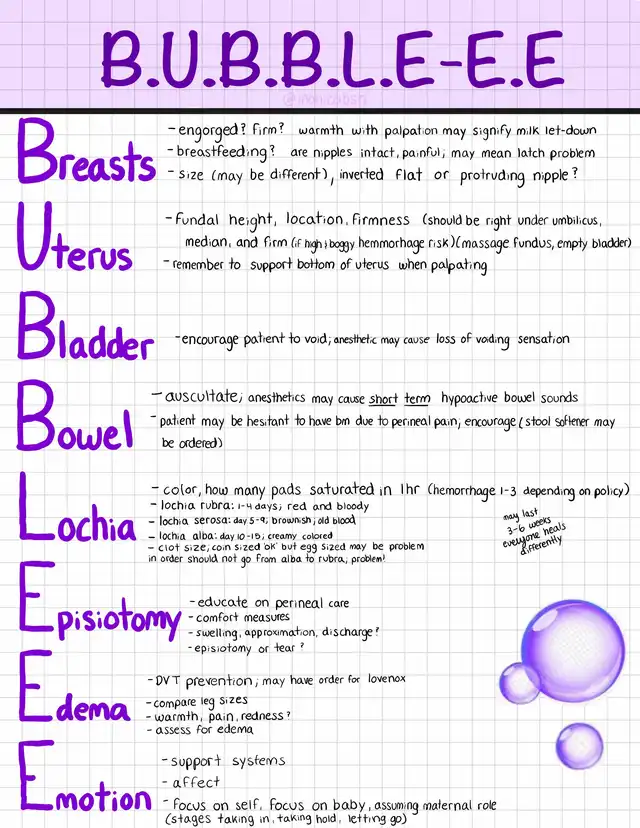 B.U.B.B.L.E-E.E
Breasts
- engorged? firm? warmth with palpation may signify milk let-down
- breastfeeding? are nipples intact, painful; may mean latch problem
- size (may be different), inverted flat or protruding nipple?
Uterus
- Fundal height, location, firmness (should be right under umbilicus,
median, and firm (if high & boggy hemmorhage risk)(massage fundus, empty bladder)
- remember to support bottom of uterus when palpating
Bladder
- encourage patient to void; anesthetic may cause loss of voding sensation
Bowel
- auscultate; anesthetics may cause short term hypoactive bowel sounds
- patient may be hesitant to have bm due to perineal pain; encourage (stool softener may
be ordered)
Lochia
- color, how many pads saturated in 1hr (hemorrhage 1-3 depending on policy)
- lochia rubra: 1-4 days; red and bloody
- lochia serosa: day 5-9; brownish; old blood
- lochia alba: day 10-15; creamy colored
- clot size; coin sized "ok" but egg sized may be problem
in order should not go from alba to rubra; problem!
may last
3-6 weeks
everyone heals
differently
Episiotomy
- educate on perineal care
- comfort measures
- swelling, approximation, discharge?
- episiotomy or tear?
Edema
- DVT prevention; may have order for lovenox
- compare leg sizes
- warmth, pain, redness?
- assess for edema
Emotion
- support systems
- affect
- focus on self, focus on baby, assuming maternal role
(stages taking in, taking hold, letting go)